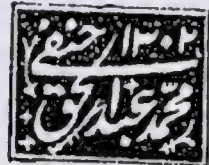 ۱۳۰۲ حنفی
محمد عبد الحق